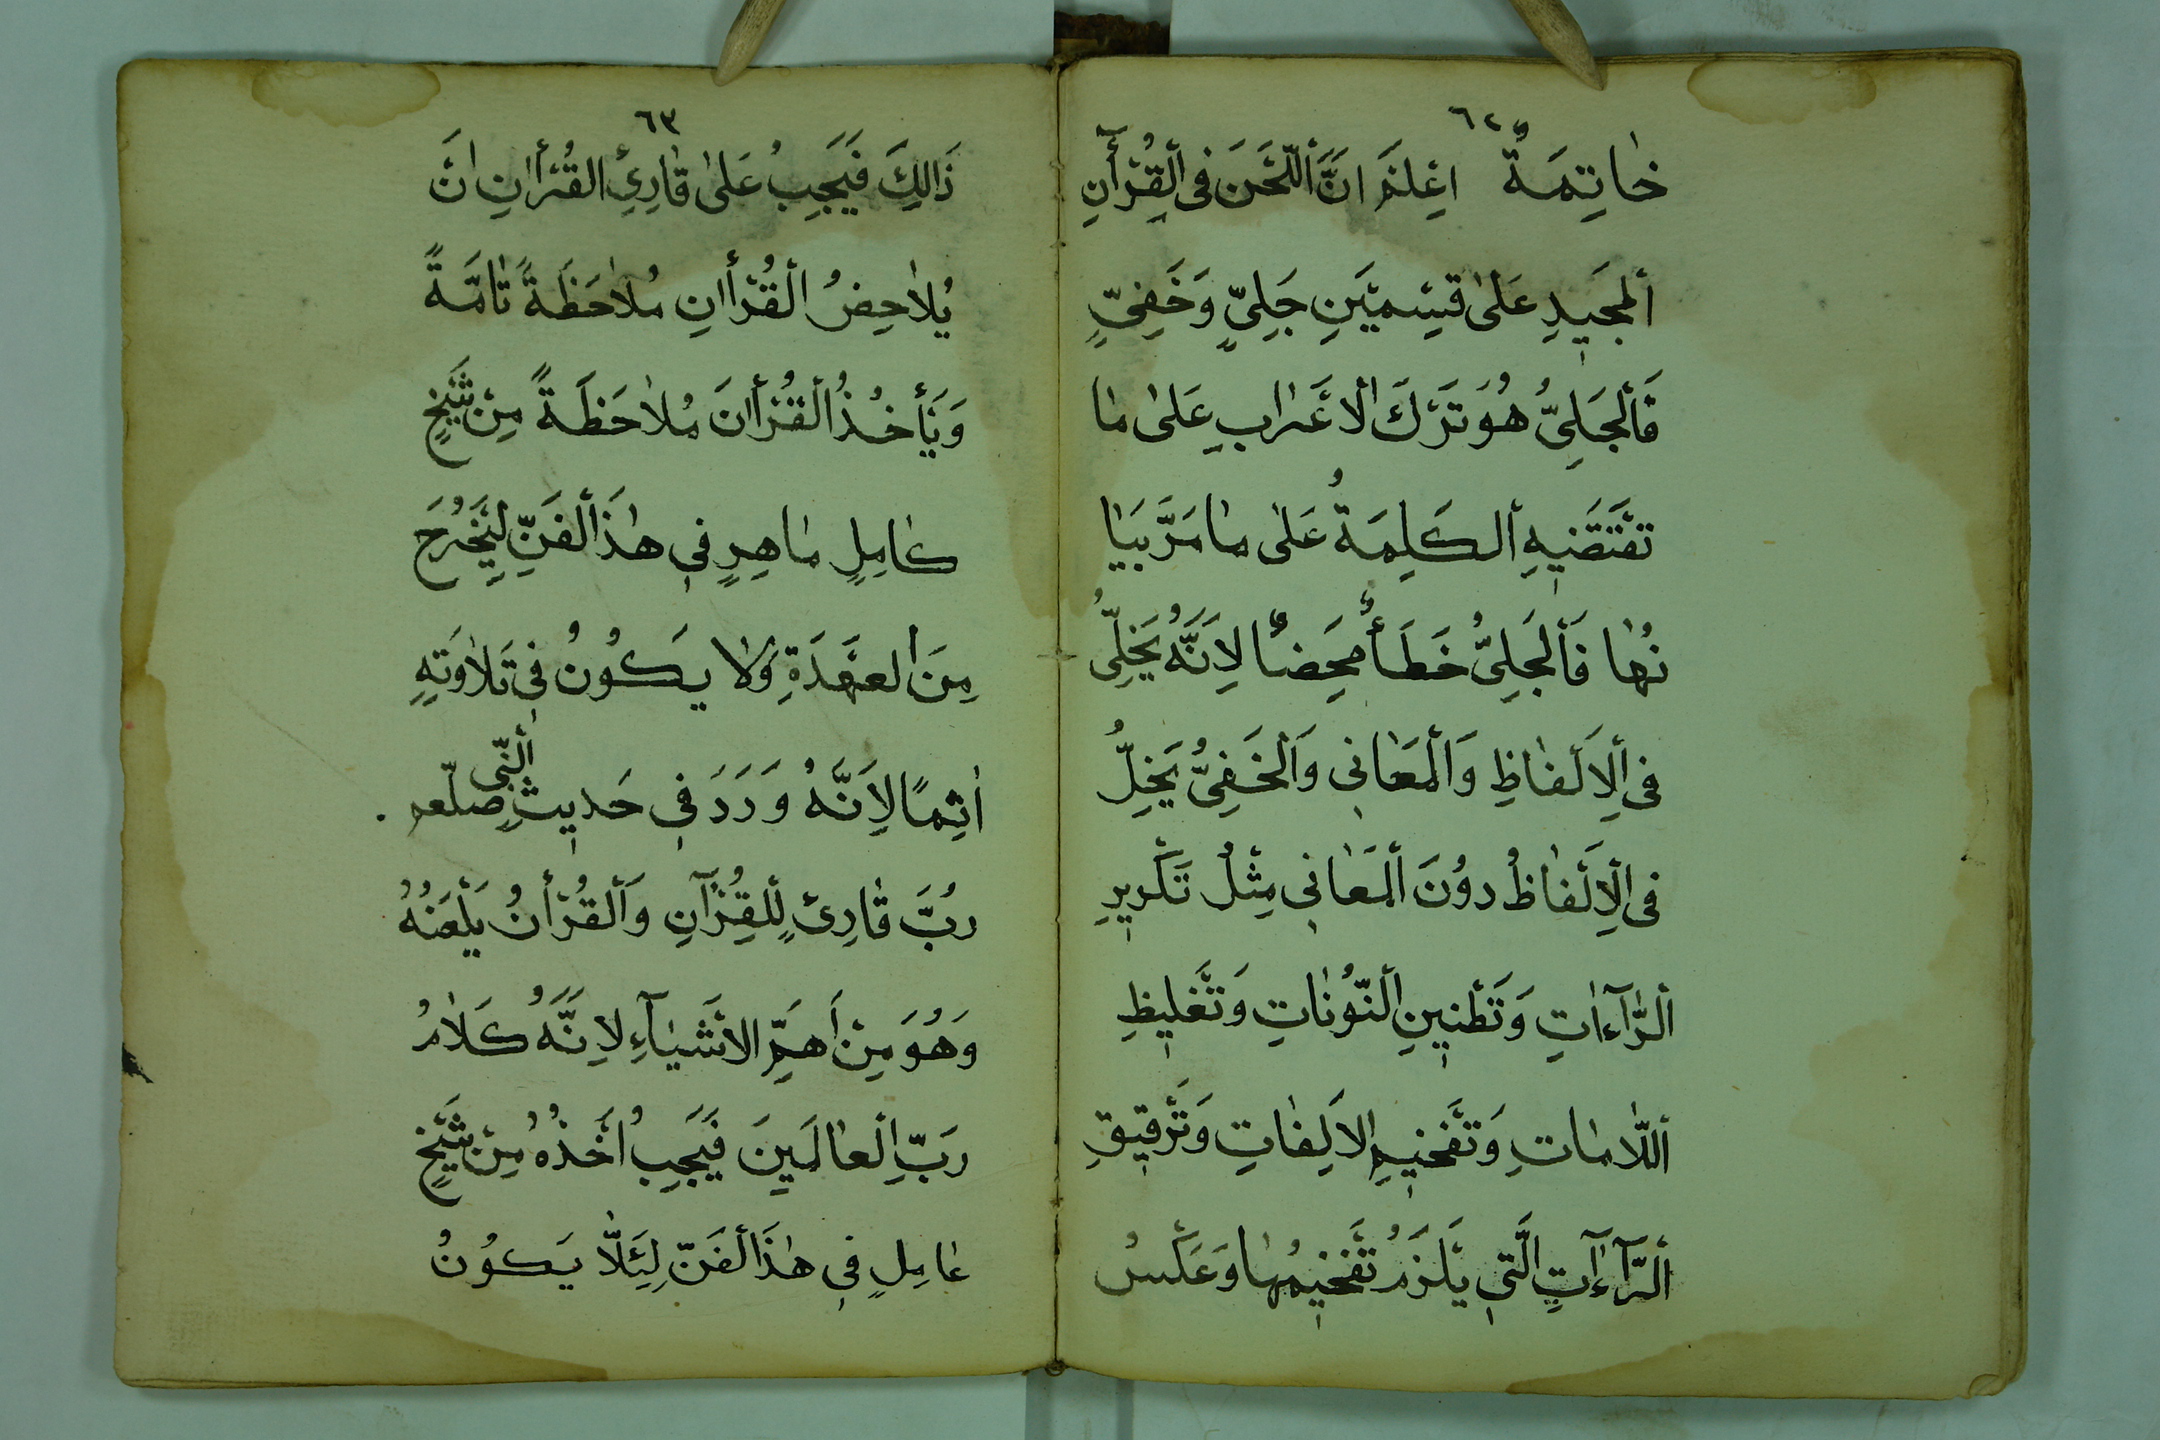 ٦٢
خَاتِمَةٌ اِعْلَمْ اَنَّ اَللَّحْنَ فِى اَلْقُرْأٰنِ
اَلْمَجِيدِ عَلٰى قِسْمَيْنِ جَلِىٍّ وَخَفِىٍّ
فَاَلْجَلِىُّ هُوَ تَرْكَ اْلاَعْرَابِ عَلٰى مَا
تَقْتَضِيهِ اَلْكَلِمَةُ عَلٰى مَا مَرَّ بَيَا
نُهَا فَاَلْجَلِىُّ خَطَأٌ مَحْضًا لِاَنَّهُ يَخِلُّى
فِى اْلاَلْفَاظِ وَاَلْمَعَانِى وَاَلْخَفِىُّ يَخِلُّ
فِى اْلاَلْفَاظُ دُونَ اَلْمَعَانِى مِثْلُ تَكْرِيرِ
اَلرَّآءَاتِ وَتَطْنِينِ اَلنُّونَاتِ وَتَغْلِيظِ
اَللَّامَاتِ وَتَفْخِيمِ اْلاَلِفَاتِ وَتَرْقِيقِ
اَلرَّآءَآتِ الَّتِى يَلْزَمُ تَفْخِيمُهَا وَعَكْسُ
٦٣
ذَالِكَ فَيَجِبُ عَلٰى قَارِئِ الْقُرْأٰنِ اَنْ
يُلَاحِضُ اَلْقُرْأٰنِ مُلَاحَظَةً تَامَّةً
وَيَأْخُذُ اَلْقُرْأٰنَ مُلَاحَظَةً مِنْ شَيْخٍ
كَامِلٍ مَاهِرٍ فِى هٰذَا اَلْفَنِّ لِيَخْرُجَ
مِنَ اْلعَهْدَةِ وَلَا يَكُونُ فِى تَلَاوَتِهِ
اٰثِمًا لِاَنَّهُ وَرَدَ فِى حَدِيثِ اَلنَّبِى صلّعم
رُبَّ قَارِئٍ لِلْقُرْآنِ وَاَلْقُرْأٰنُ يَلْعَنُهُ
وَهُوَ مِنْ اَهَمِّ الْاَشْيَآءِ لِاَنَّهُ كَلَامُ
رَبِّ اِلْعَالَمِينَ فَيَجِبُ اَخْذُهُ مِنْ شَيْخٍ
عَامِلٍ فِى هٰذَا اَلْفَنِّ لِئَلَّا يَكُونُ